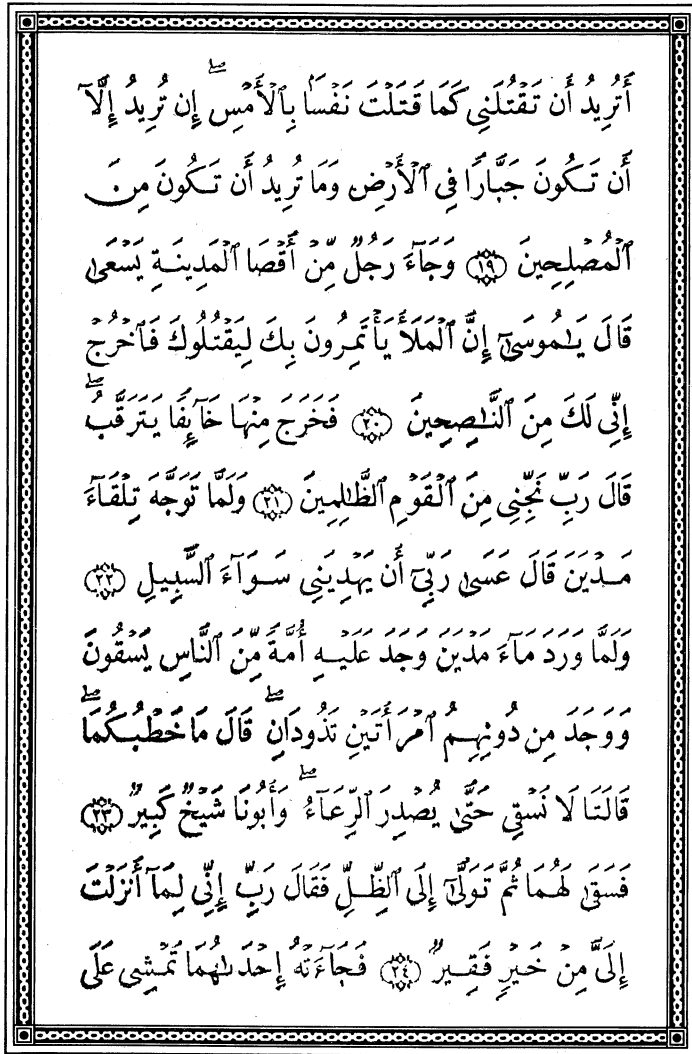 أَتُرِيدُ أَن تَقْتُلَنِى كَمَا قَتَلْتَ نَفْسًۢا بِٱلْأَمْسِ ۖ إِن تُرِيدُ إِلَّآ
أَن تَكُونَ جَبَّارًا فِى ٱلْأَرْضِ وَمَا تُرِيدُ أَن تَكُونَ مِنَ
ٱلْمُصْلِحِينَ ﴿١٩﴾ وَجَآءَ رَجُلٌ مِّنْ أَقْصَا ٱلْمَدِينَةِ يَسْعَىٰ
قَالَ يَـٰمُوسَىٰٓ إِنَّ ٱلْمَلَأَ يَأْتَمِرُونَ بِكَ لِيَقْتُلُوكَ فَٱخْرُجْ
إِنِّى لَكَ مِنَ ٱلنَّـٰصِحِينَ ﴿٢٠﴾ فَخَرَجَ مِنْهَا خَآئِفًا يَتَرَقَّبُ ۖ
قَالَ رَبِّ نَجِّنِى مِنَ ٱلْقَوْمِ ٱلظَّـٰلِمِينَ ﴿٢١﴾ وَلَمَّا تَوَجَّهَ تِلْقَآءَ
مَدْيَنَ قَالَ عَسَىٰ رَبِّىٓ أَن يَهْدِيَنِى سَوَآءَ ٱلسَّبِيلِ ﴿٢٢﴾
وَلَمَّا وَرَدَ مَآءَ مَدْيَنَ وَجَدَ عَلَيْهِ أُمَّةً مِّنَ ٱلنَّاسِ يَسْقُونَ
وَوَجَدَ مِن دُونِهِمُ ٱمْرَأَتَيْنِ تَذُودَانِ ۖ قَالَ مَا خَطْبُكُمَا ۖ
قَالَتَا لَا نَسْقِى حَتَّىٰ يُصْدِرَ ٱلرِّعَآءُ ۖ وَأَبُونَا شَيْخٌ كَبِيرٌ ﴿٢٣﴾
فَسَقَىٰ لَهُمَا ثُمَّ تَوَلَّىٰٓ إِلَى ٱلظِّلِّ فَقَالَ رَبِّ إِنِّى لِمَآ أَنزَلْتَ
إِلَىَّ مِنْ خَيْرٍ فَقِيرٌ ﴿٢٤﴾ فَجَآءَتْهُ إِحْدَىٰهُمَا تَمْشِى عَلَى